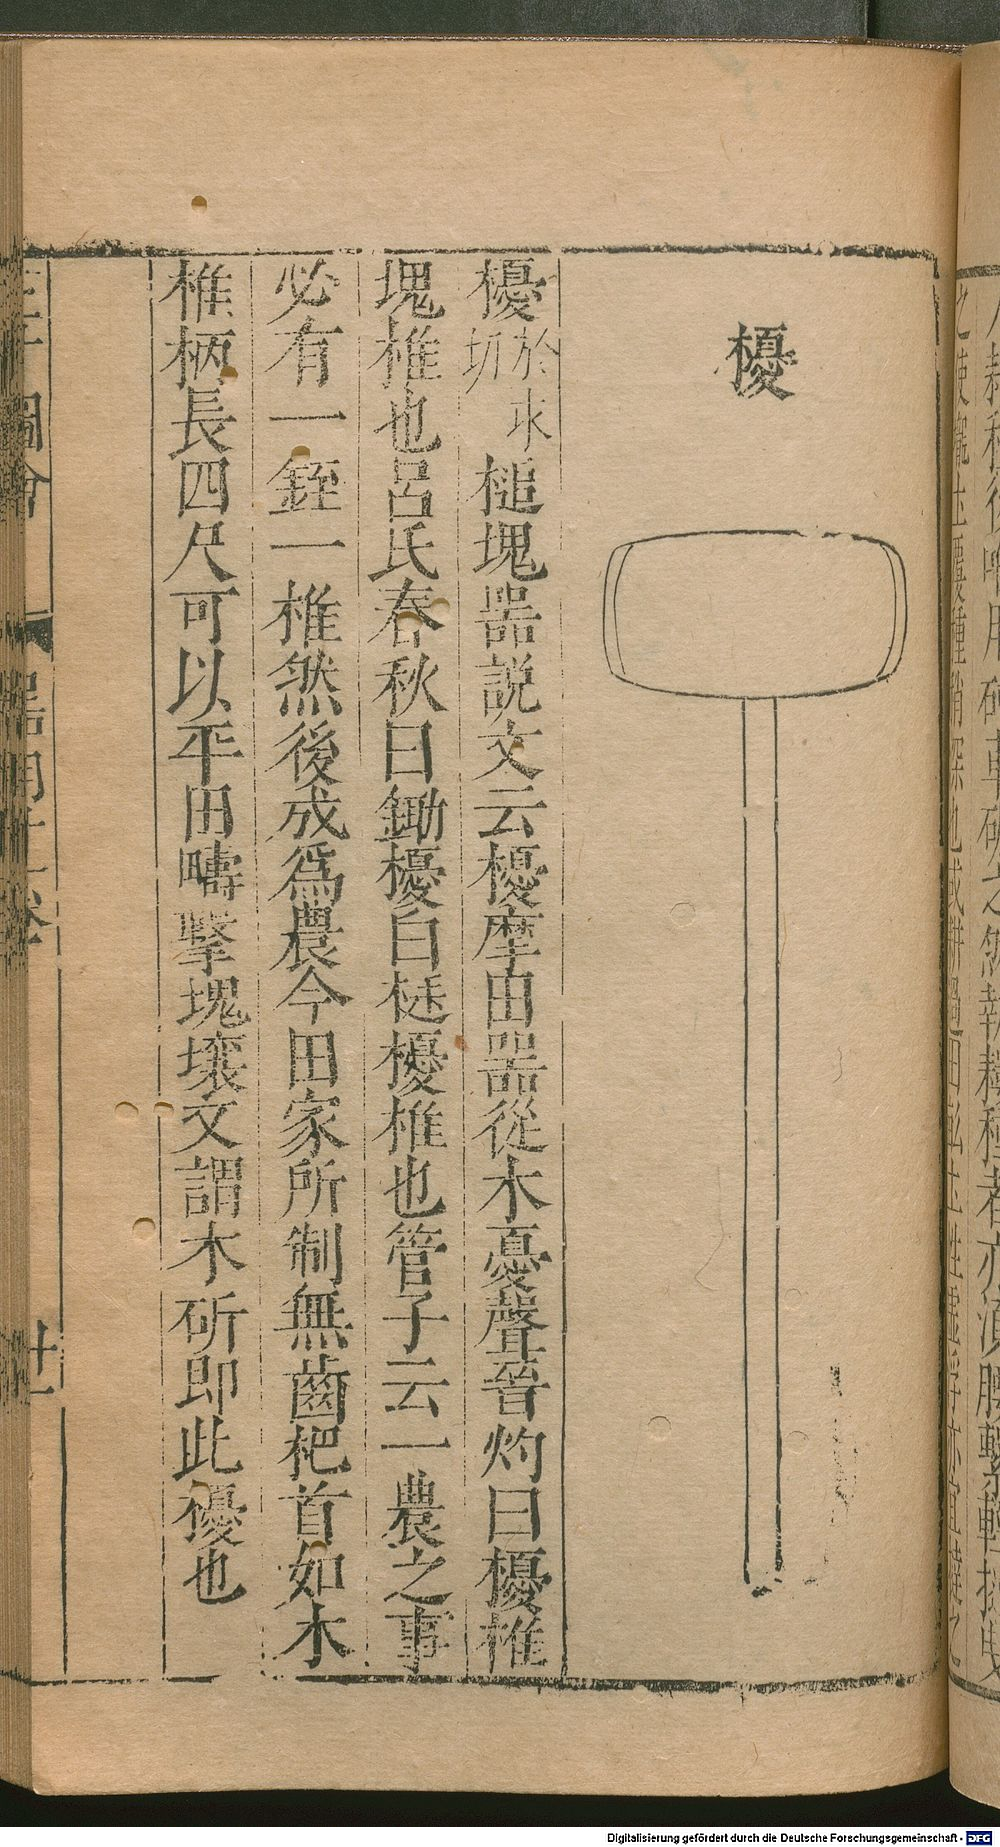 櫌
櫌於求切槌塊器説文云櫌摩田器從木憂聲晉灼曰櫌椎
塊椎也呂氏春秋曰鋤櫌白梃櫌椎也管子云一農之事
必有一銍一椎然後成爲農今田家所制無齒杷首如木
椎柄長四尺可以平田疇擊塊壤又謂木斫即此櫌也
圖會
器用十卷
廿一
Digitalisierung gefördert durch die Deutsche Forschungsgemeinschaft - DFG